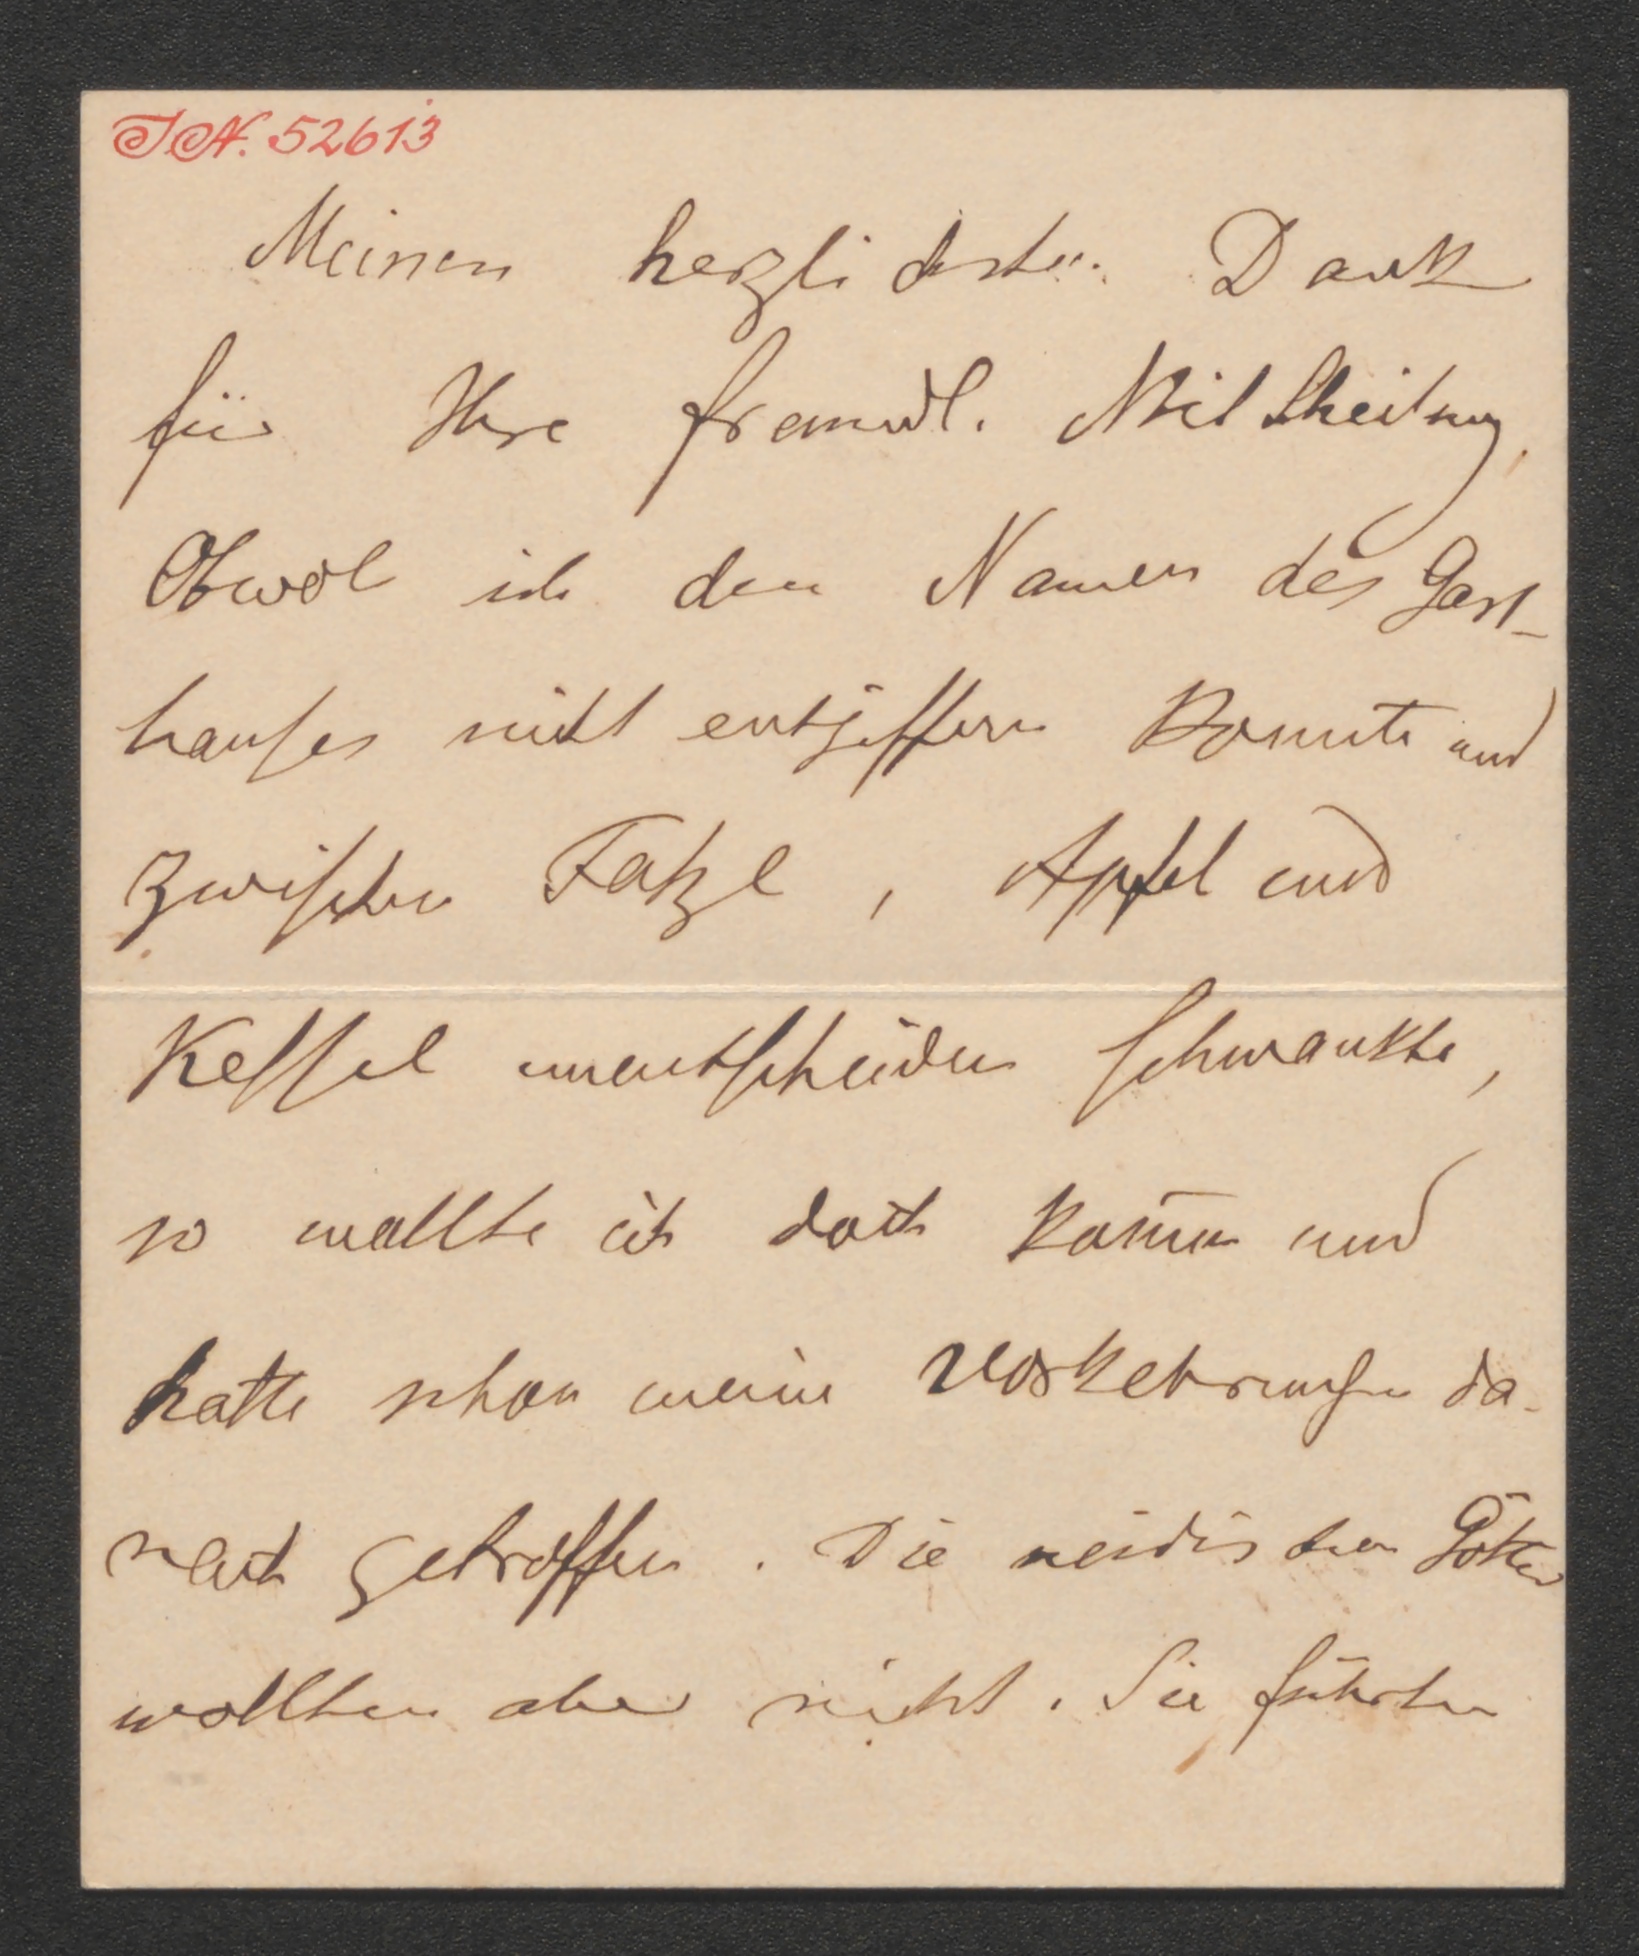 I.N. 52613
Meinen herzlichsten Dank
für Ihre freundl. Mittheilung.
Obwol ich den Namen des Gast-
hauses nicht entziffern konnte und
zwischen Fatzl, Apfel und
Kessel unentschieden schwankte,
so wollte ich doch kom̅en und
hatte schon meine Vorkehrungen da-
nach getroffen. Die neidischen Götter
wollten aber nicht. Sie führten